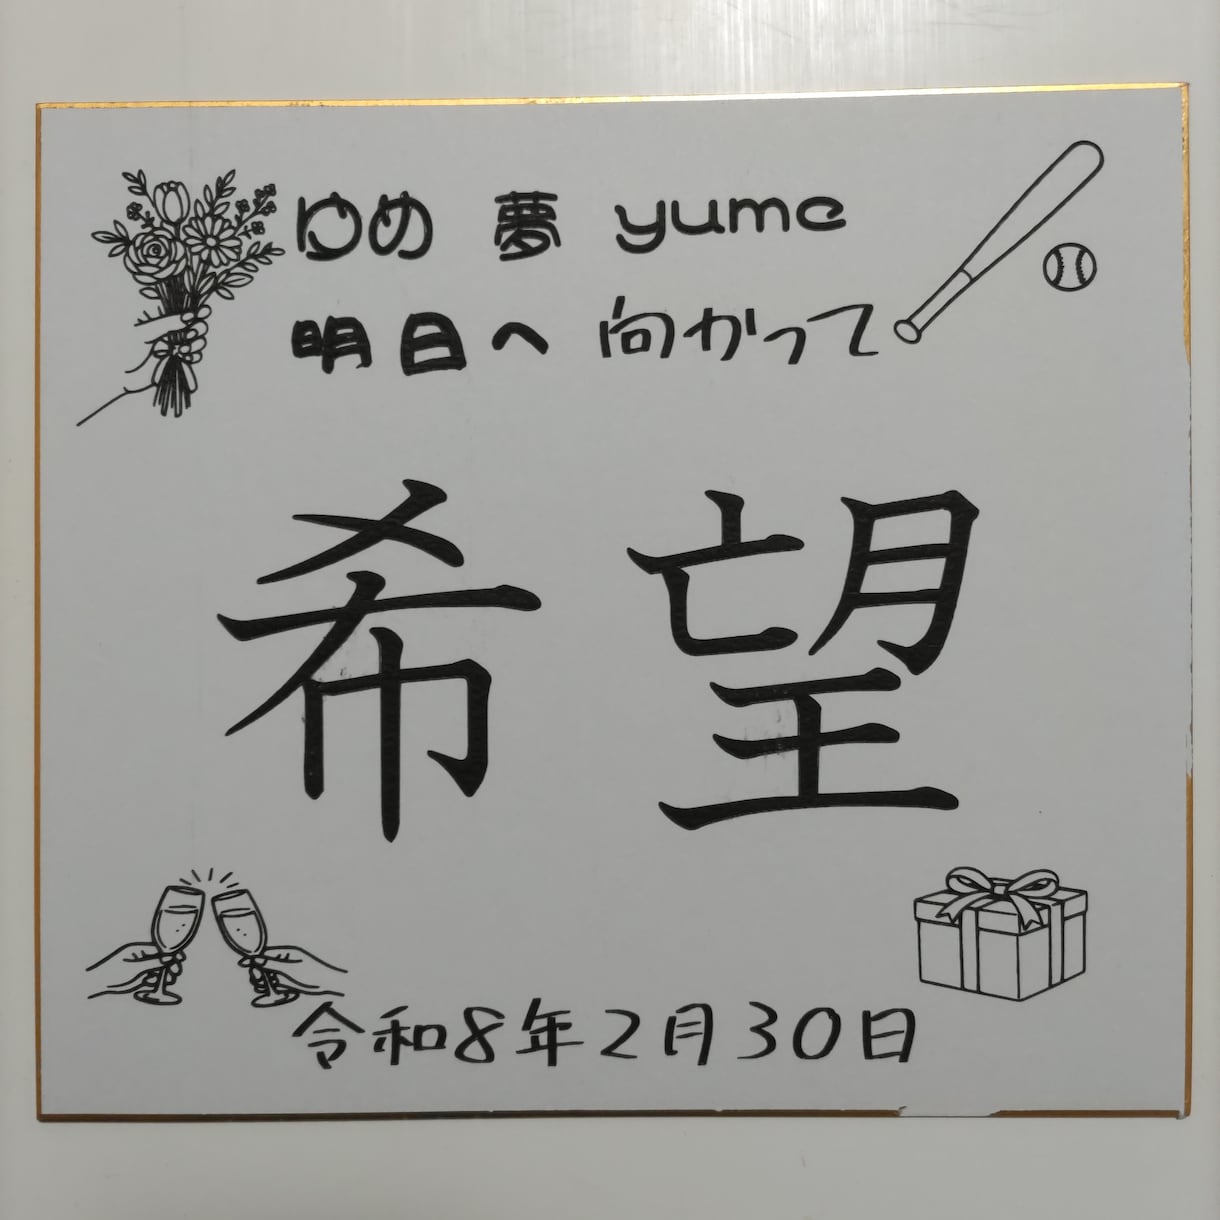 ゆめ 夢 yume
明日へ 向かって
希望
令和8年2月30日